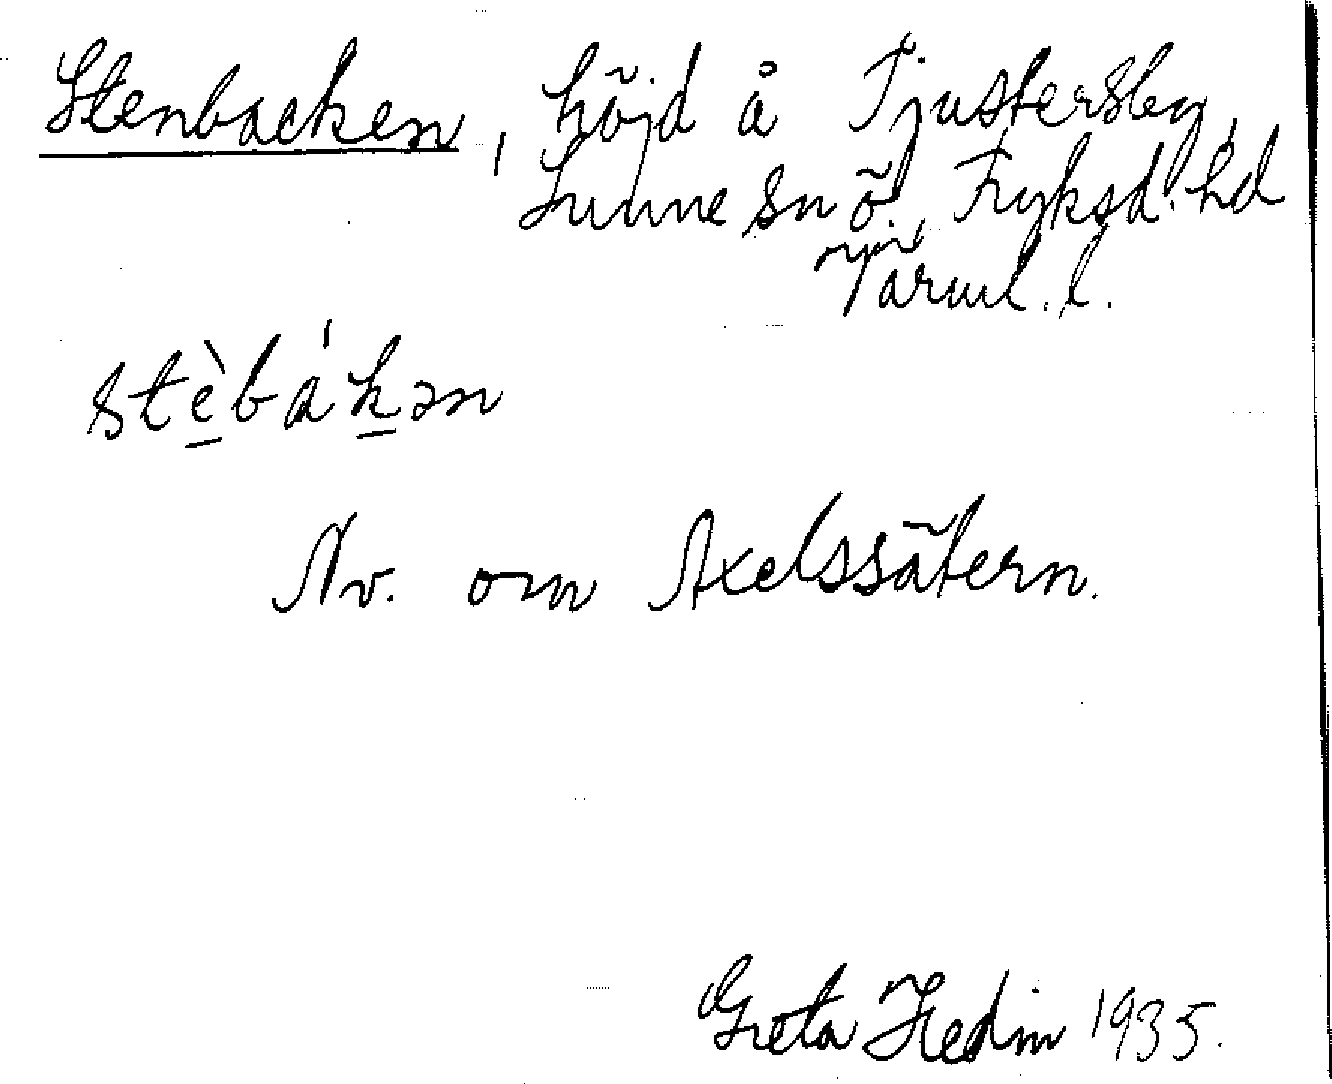 Stenbacken, höjd å Tjustersby,
Sunne sn ö., Fryksd. hd
Värml. l.
stè̱báḵən
Nv. om Axelssätern.
Greta Hedin 1935.